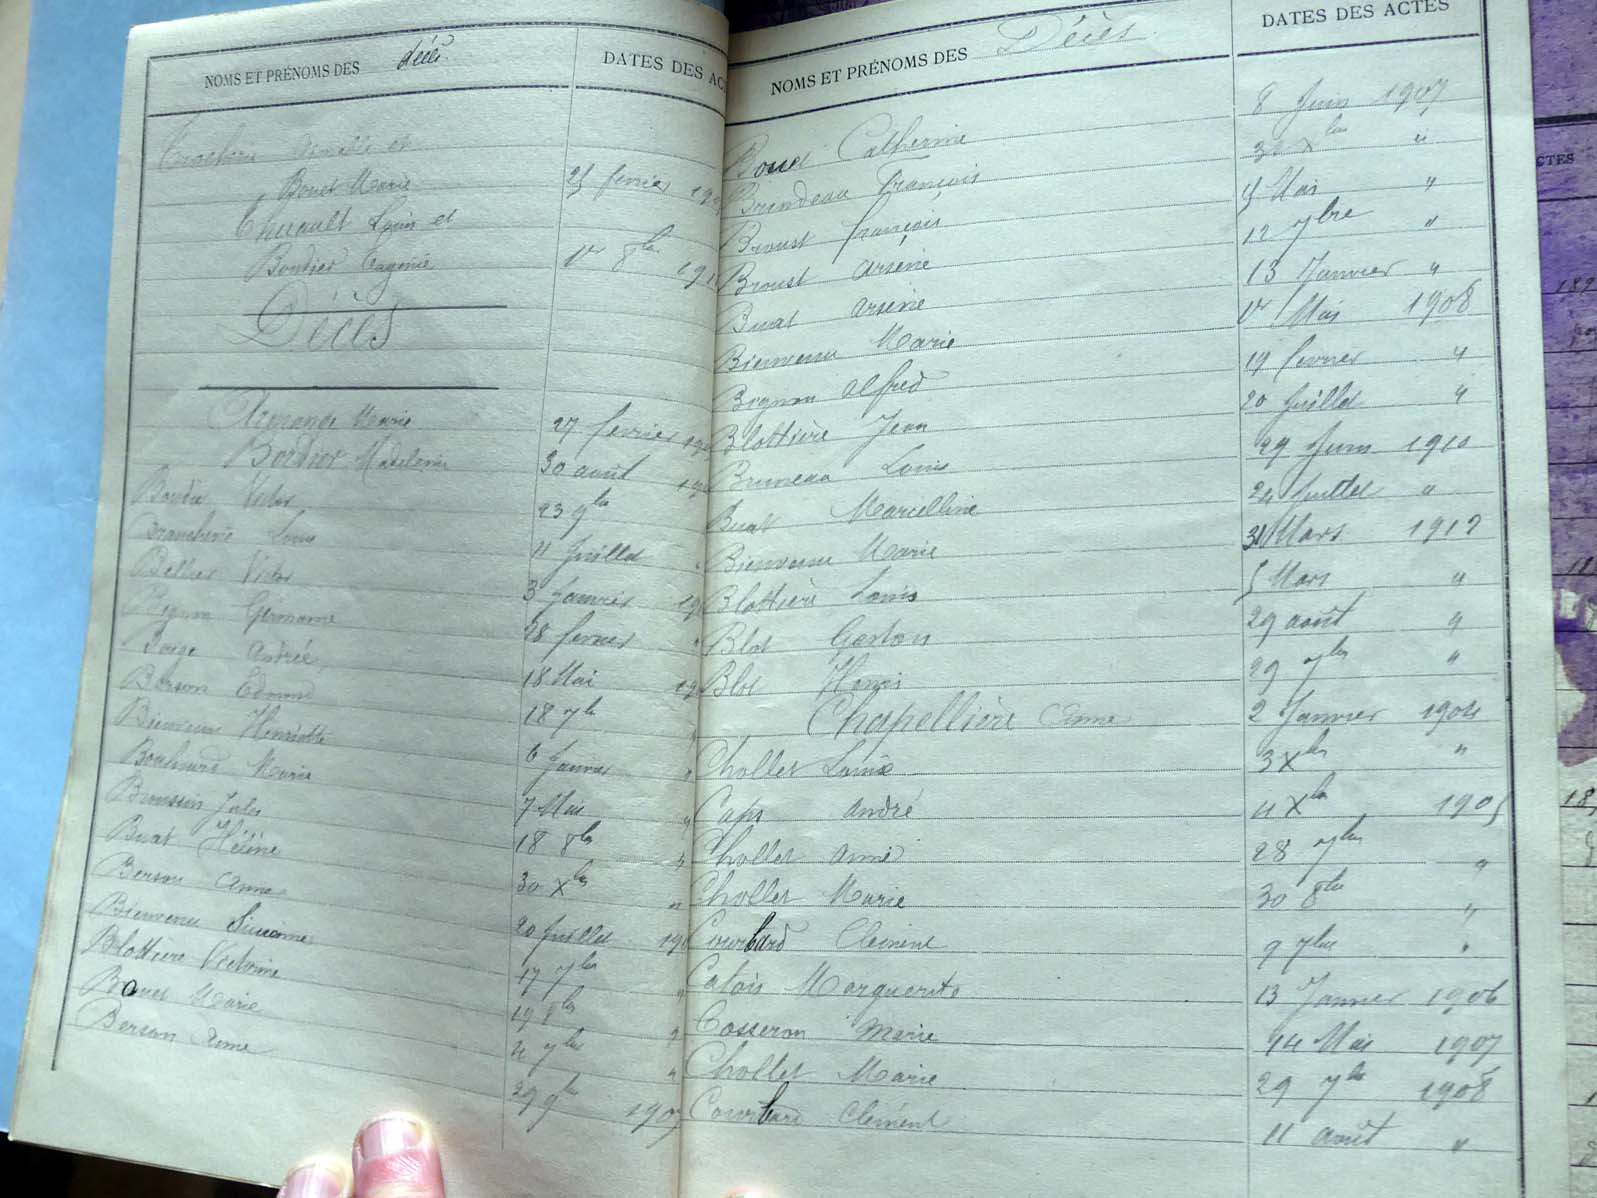 NOMS ET PRÉNOMS DES décès DATES DES AC
et
Bouet Marie 25 février 19
Thuault Louis et
Bordier Eugénie 1er 8bre 191
Décès
Marie 27 février 190
Bordier Madeleine 30 août 19
Victor 23 9bre
Brancherie Louis 11 Juillet "
Bellier Victor 3 Janvier 19
Bignon Germaine 28 février "
André 18 Mai 190
Berson Edmond 18 7bre "
Bienvenu Henriette 6 Janvier "
Bouhard Marie 7 Mai "
Broussin Jules 18 8bre "
Buat Hélène 30 Xbre "
Berson Anne 20 Juillet 190
Bienvenu 17 7bre "
Blottière Victorine 19 8bre "
Bouet Marie 4 7bre "
Berson 29 9bre 1907
NOMS ET PRÉNOMS DES Décès DATES DES ACTES
Bouet Catherine 8 Juin 1907
Brindeau François 30 Xbre "
Broust François 5 Mai "
Broust Arsène 12 7bre "
Buat Arsène 13 Janvier "
Bienvenu Marie 1er Mai 1908
Bignon Alfred 19 février "
Blottière Jean 20 Juillet "
Bruneau Louis 29 Juin 1910
Buat Marcelline 24 Juillet "
Bienvenu Marie 31 Mars 1912
Blottière Louis 5 Mars "
Blot Gaston 29 août "
Blot Henri 29 7bre "
Chapellière Anne 2 Janvier 1904
Chollet Louise 3 Xbre "
Caps André 4 Xbre 1905
Chollet Anne 28 7bre "
Chollet Marie 30 8bre "
Courbard Clément 9 7bre "
Calois Marguerite 13 Janvier 1906
Cosseron Marie 14 Mai 1907
Chollet Marie 29 7bre 1908
Courbard Clément 11 août "
CTES